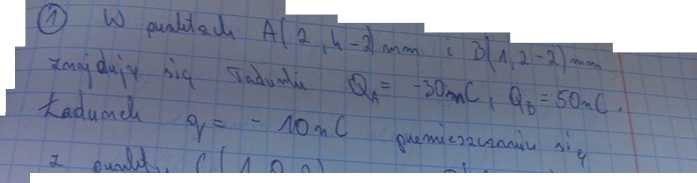 ① W punktach A(2,4-2)mm i B(1,2-2)mm
znajdują się ładunki Q_A = -30nC, Q_B = 50nC.
Ładunek q = - 10nC przemieszczaniu się
z punktu C(1,0,0)